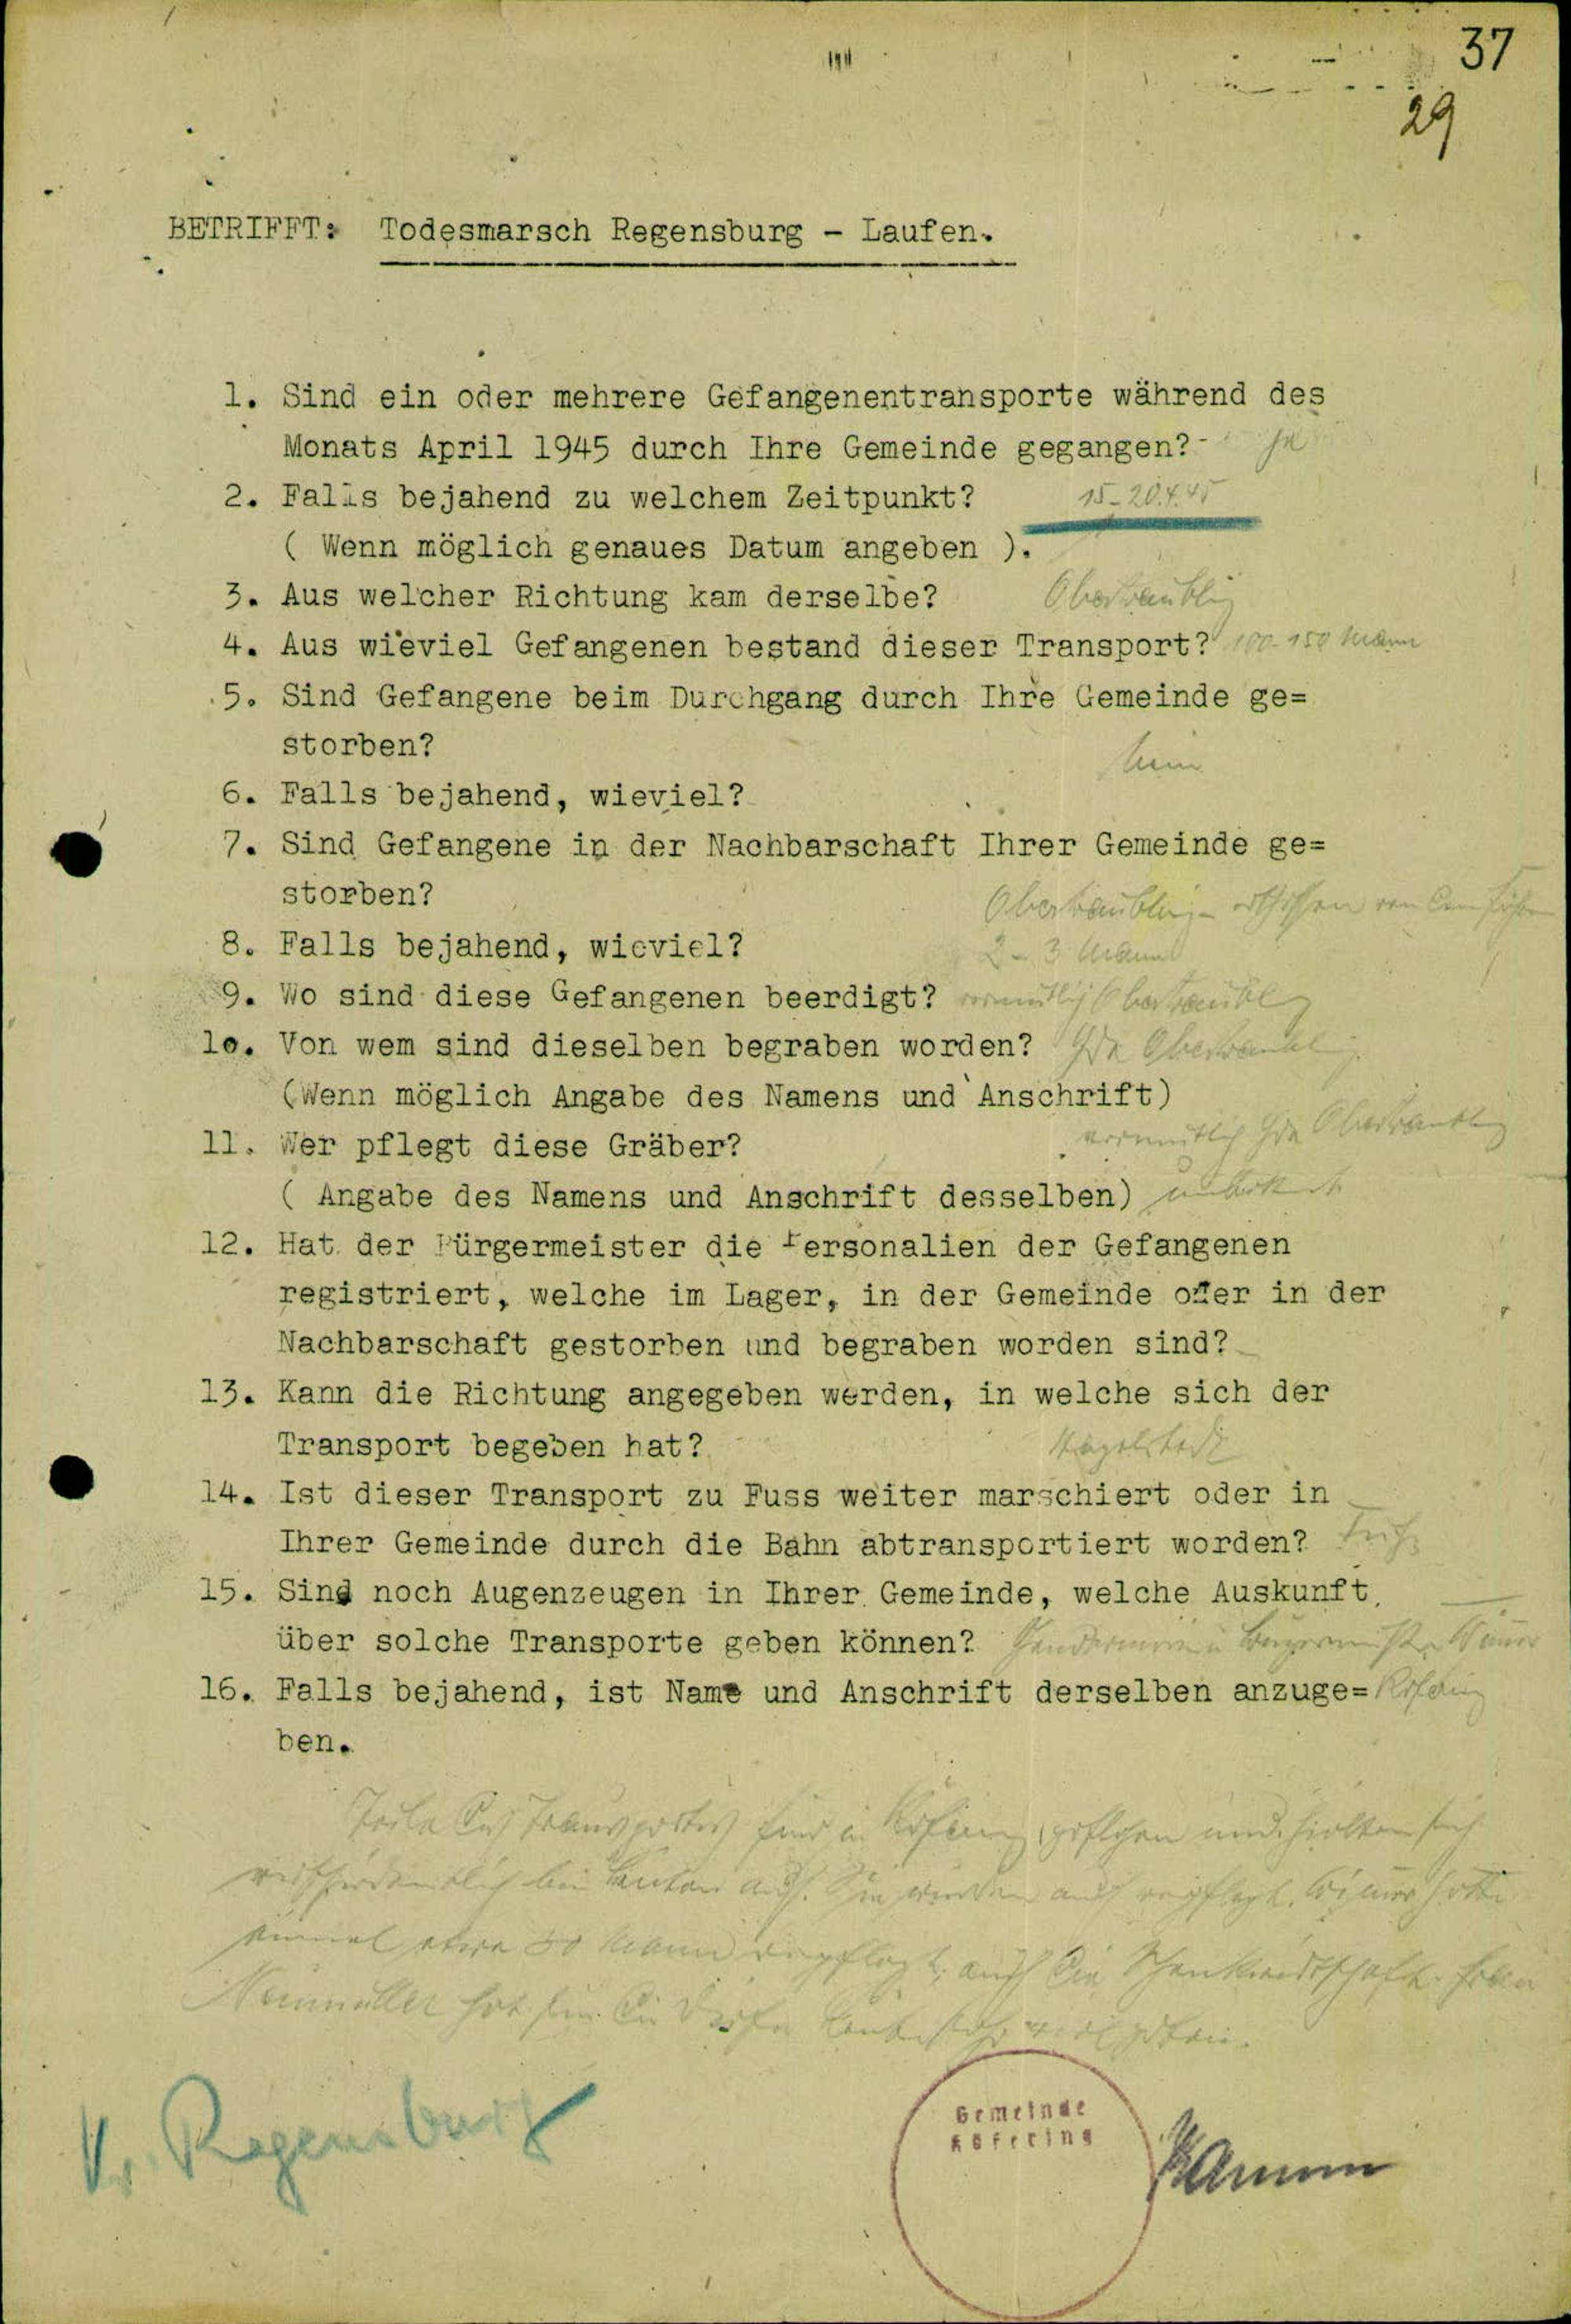 37
29
BETRIFFT: Todesmarsch Regensburg - Laufen.
1. Sind ein oder mehrere Gefangenentransporte während des
Monats April 1945 durch Ihre Gemeinde gegangen?- ja
2. Falls bejahend zu welchem Zeitpunkt? 15-20.4.45
( Wenn möglich genaues Datum angeben ).
3. Aus welcher Richtung kam derselbe? Obertraubling
4. Aus wieviel Gefangenen bestand dieser Transport? 100-150 Mann
5. Sind Gefangene beim Durchgang durch Ihre Gemeinde ge=
storben?
Nein
6. Falls bejahend, wieviel?
7. Sind Gefangene in der Nachbarschaft Ihrer Gemeinde ge=
storben? Obertraubling -
8. Falls bejahend, wieviel? 2 - 3 Mann
9. Wo sind diese Gefangenen beerdigt? vermutlich Obertraubling
10. Von wem sind dieselben begraben worden? Gde Obertraubling
(Wenn möglich Angabe des Namens und Anschrift)
11. Wer pflegt diese Gräber? vermutlich Gde Obertraubling
( Angabe des Namens und Anschrift desselben) unbekannt
12. Hat der Bürgermeister die Personalien der Gefangenen
registriert, welche im Lager, in der Gemeinde oder in der
Nachbarschaft gestorben und begraben worden sind?
13. Kann die Richtung angegeben werden, in welche sich der
Transport begeben hat? Hagelstadt
14. Ist dieser Transport zu Fuss weiter marschiert oder in
Ihrer Gemeinde durch die Bahn abtransportiert worden? Fuß
15. Sind noch Augenzeugen in Ihrer Gemeinde, welche Auskunft
über solche Transporte geben können? Gendarmerie u Bürgermeister
16. Falls bejahend, ist Name und Anschrift derselben anzuge= Köfering
ben.
Teile des Transportes sind in Köfering geflohen und hielten sich
bei auf. Sie wurden auch verpflegt. hatte
einmal etwa 50 Mann verpflegt, auch die Frau
Neumüller hat für die
Kr. Regensburg
Gemeinde
Köfering